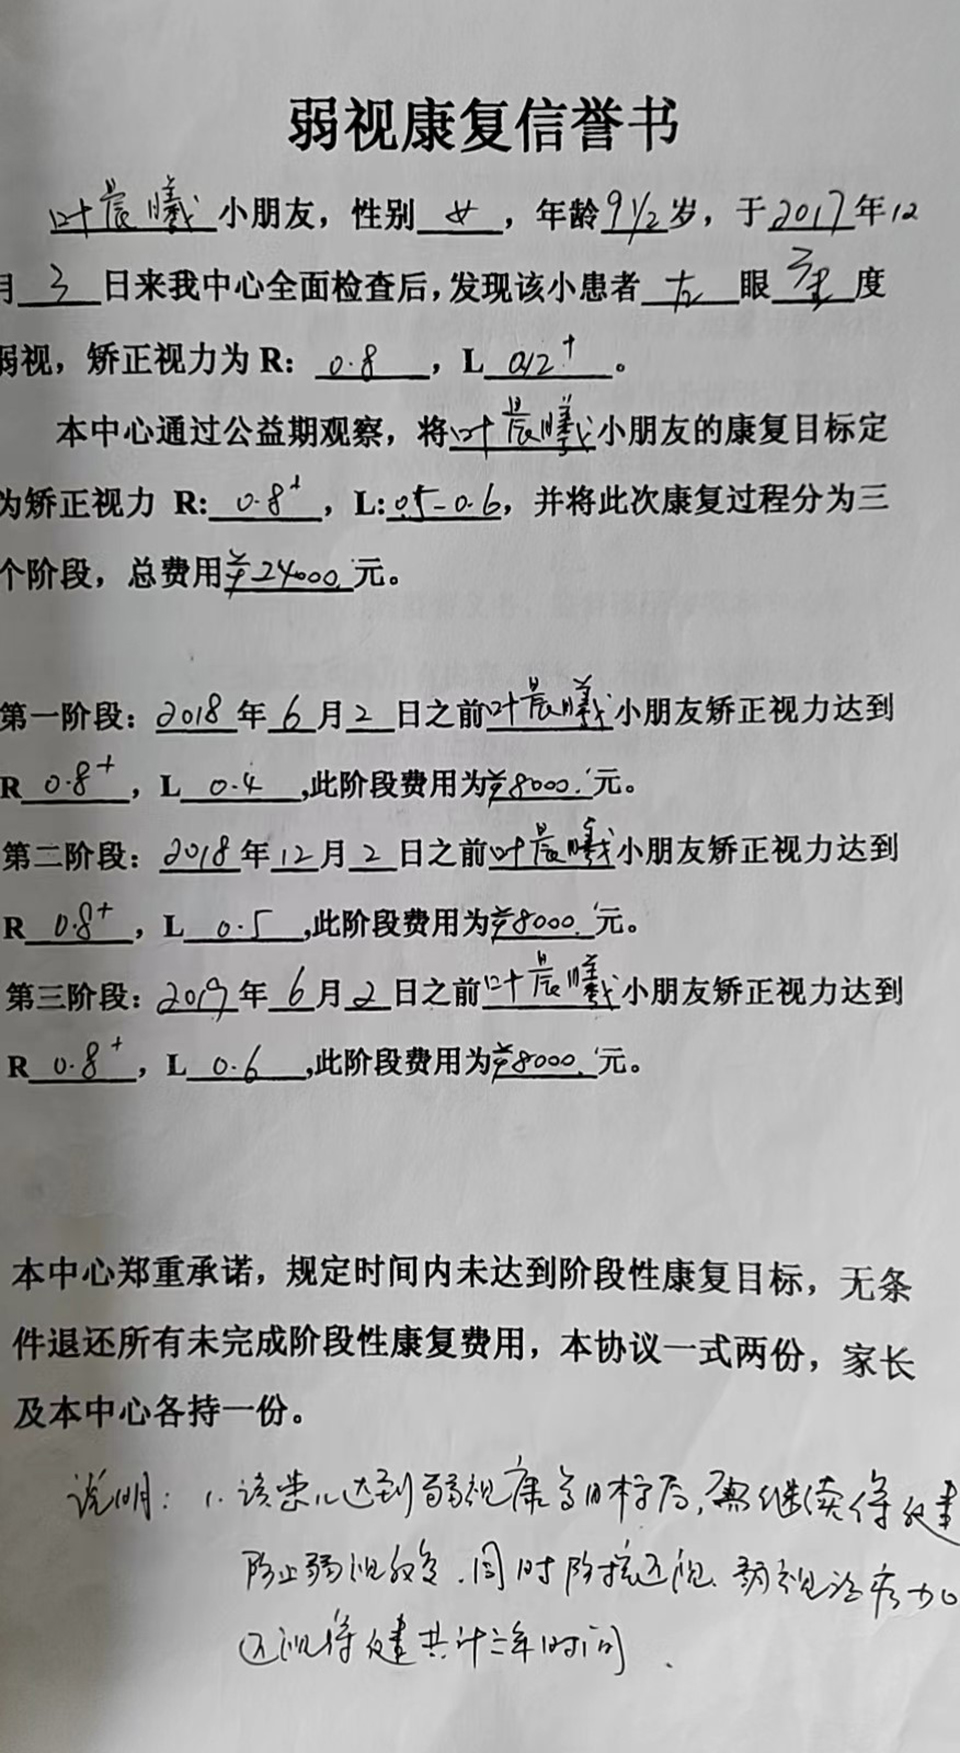 弱视康复信誉书
叶晨曦小朋友，性别 女 ，年龄9 1/2岁，于2017年12
月 3 日来我中心全面检查后，发现该小患者 左 眼 重 度
弱视，矫正视力为 R： 0.8 ，L 0.12⁺ 。
本中心通过公益期观察，将叶晨曦小朋友的康复目标定
为矫正视力 R: 0.8⁺ ，L: 0.5-0.6，并将此次康复过程分为三
个阶段，总费用¥24000.元。
第一阶段：2018 年 6 月 2 日之前叶晨曦小朋友矫正视力达到
R 0.8⁺ ，L 0.4 ,此阶段费用为¥8000.元。
第二阶段：2018年12月 2 日之前叶晨曦小朋友矫正视力达到
R 0.8⁺ ，L 0.5 ,此阶段费用为¥8000.元。
第三阶段：2019年 6 月 2 日之前叶晨曦小朋友矫正视力达到
R 0.8⁺ ，L 0.6 ,此阶段费用为¥8000.元。
本中心郑重承诺，规定时间内未达到阶段性康复目标，无条
件退还所有未完成阶段性康复费用，本协议一式两份，家长
及本中心各持一份。
说明：1.该患儿达到弱视康复目标后，需继续保健
防止弱视 ，同时防控近视．弱视治疗加
近视保健共计三年时间．